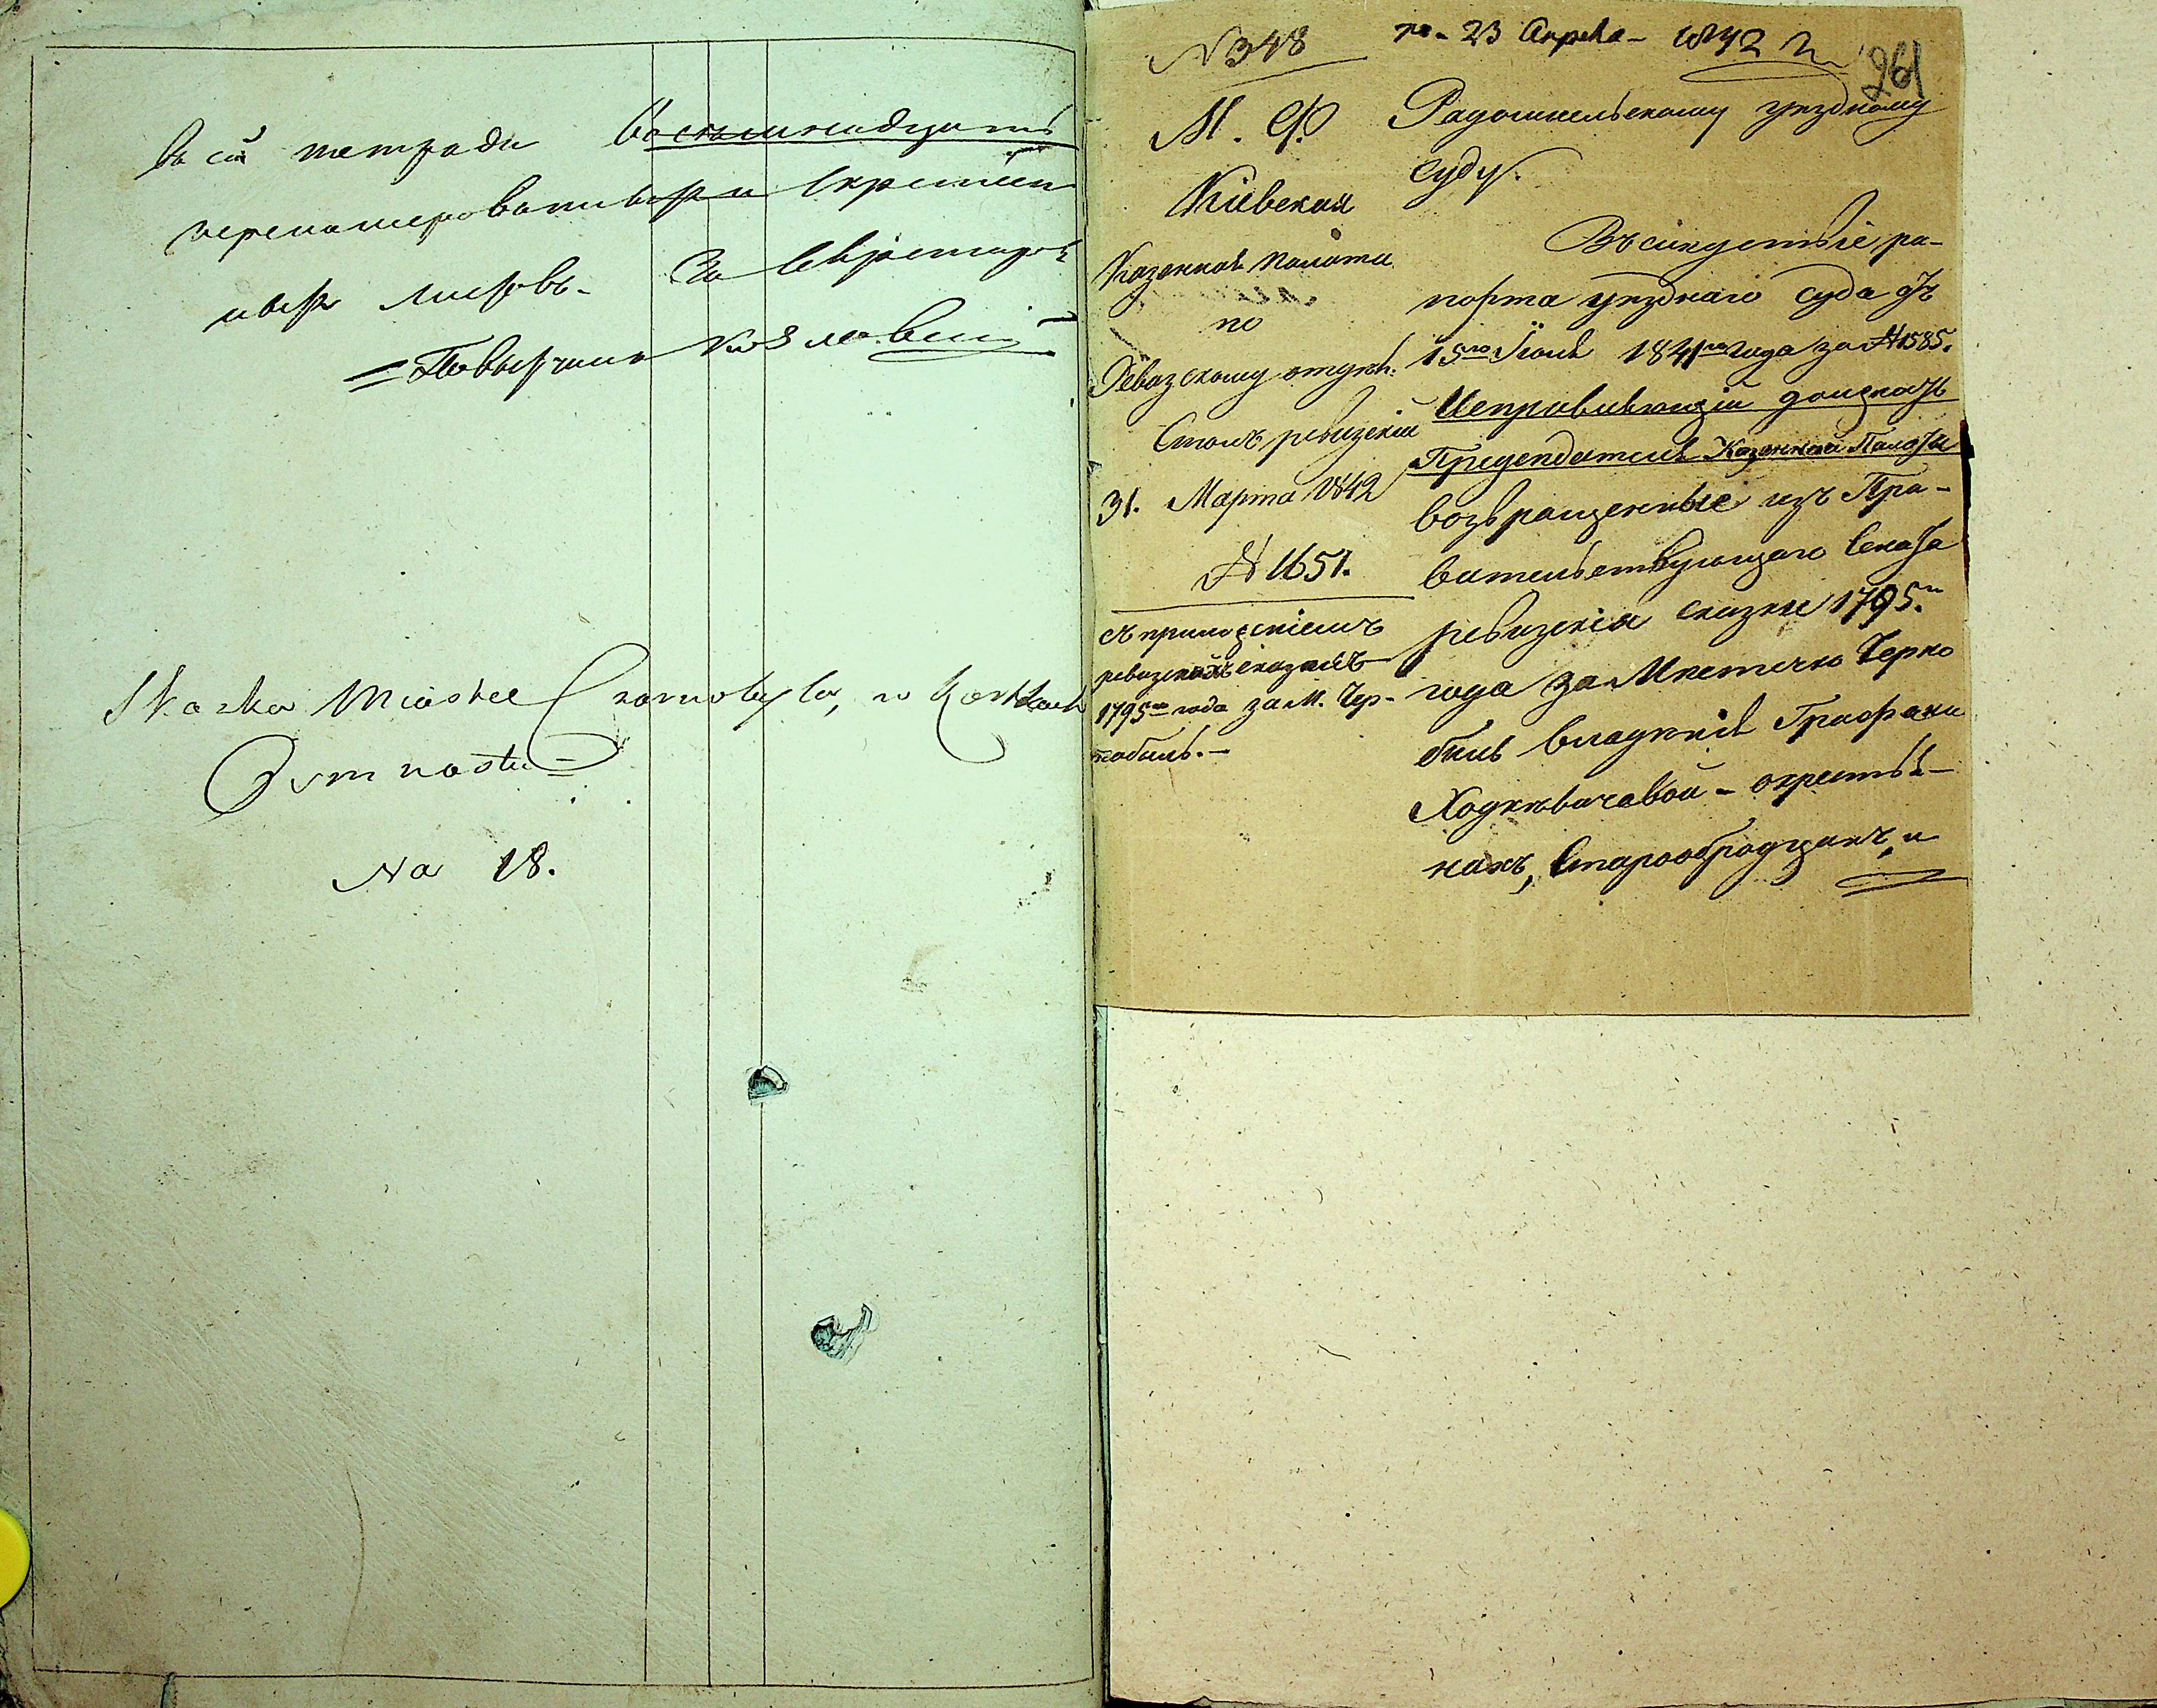 Въ сей тетради Восемьнадцать
перенумерованныхъ и скрепленныхъ листовъ. За Секретаря
Повытчикъ Козловскій
Skazka Miasteczka Czarnobyla, w Kartkach
Osmnastu
No 18.
N 348
по. 23 Апреля 1842 г.
261
М. Ф.
Кіевская
Казенная Палата
по
Ревизскому отдѣл.
Столъ ревизскій
31. Марта 1842
№ 1651.
съ приложеніемъ
ревизскихъ сказокъ
1795го года за М. Чер-
нобыль.
Радомысльскому уѣздному
суду.
Въ слѣдствіе ра-
порта уѣзднаго суда отъ
15го Іюля 1841го года за № 1585.
Исправляющій должность
Предсѣдателя Казенной Палаты
возвращенные изъ Пра-
вительствующаго Сената
ревизскія сказки 1795.
года за Мѣстечко Черно
быль владѣнія Графини
Ходкѣвичовой о крестья-
нахъ, Старообрядцахъ, и